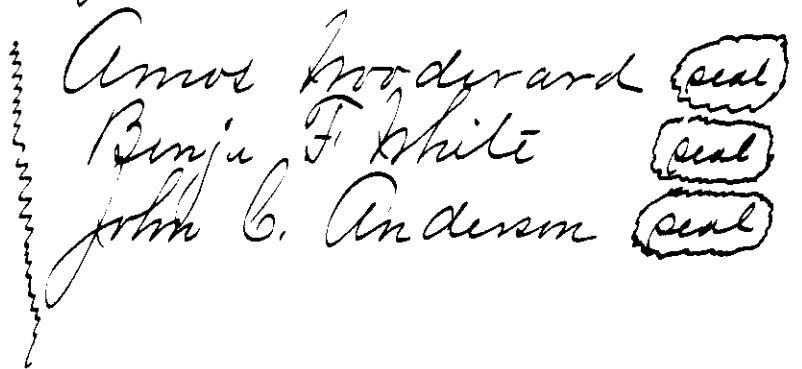 Amos Woodward seal
Benju F White seal
John C. Anderson seal